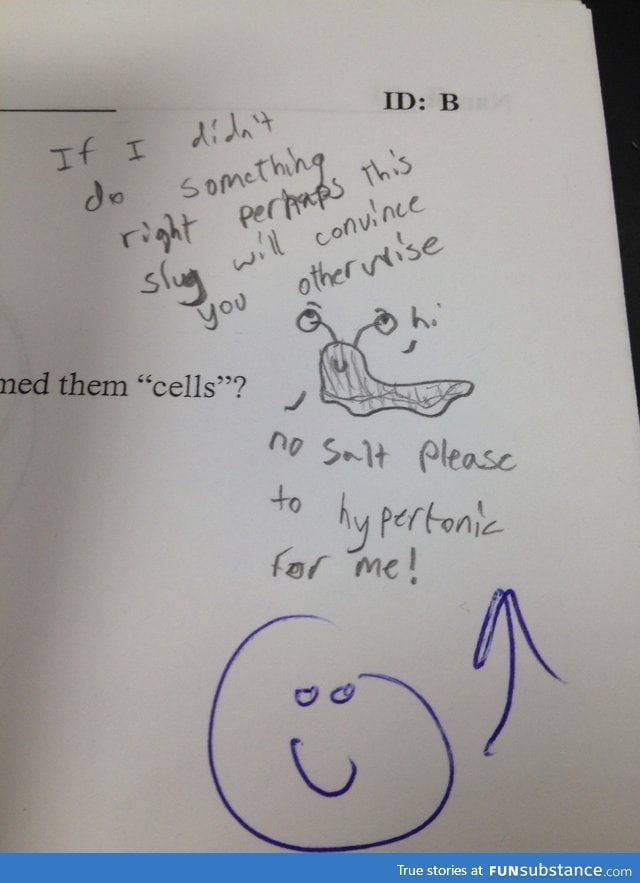 ID: B
If I didn't
do something
right perhaps this
slug will convince
you otherwise
hi
med them “cells”?
no salt please
to hypertonic
for me!
True stories at FUNsubstance.com